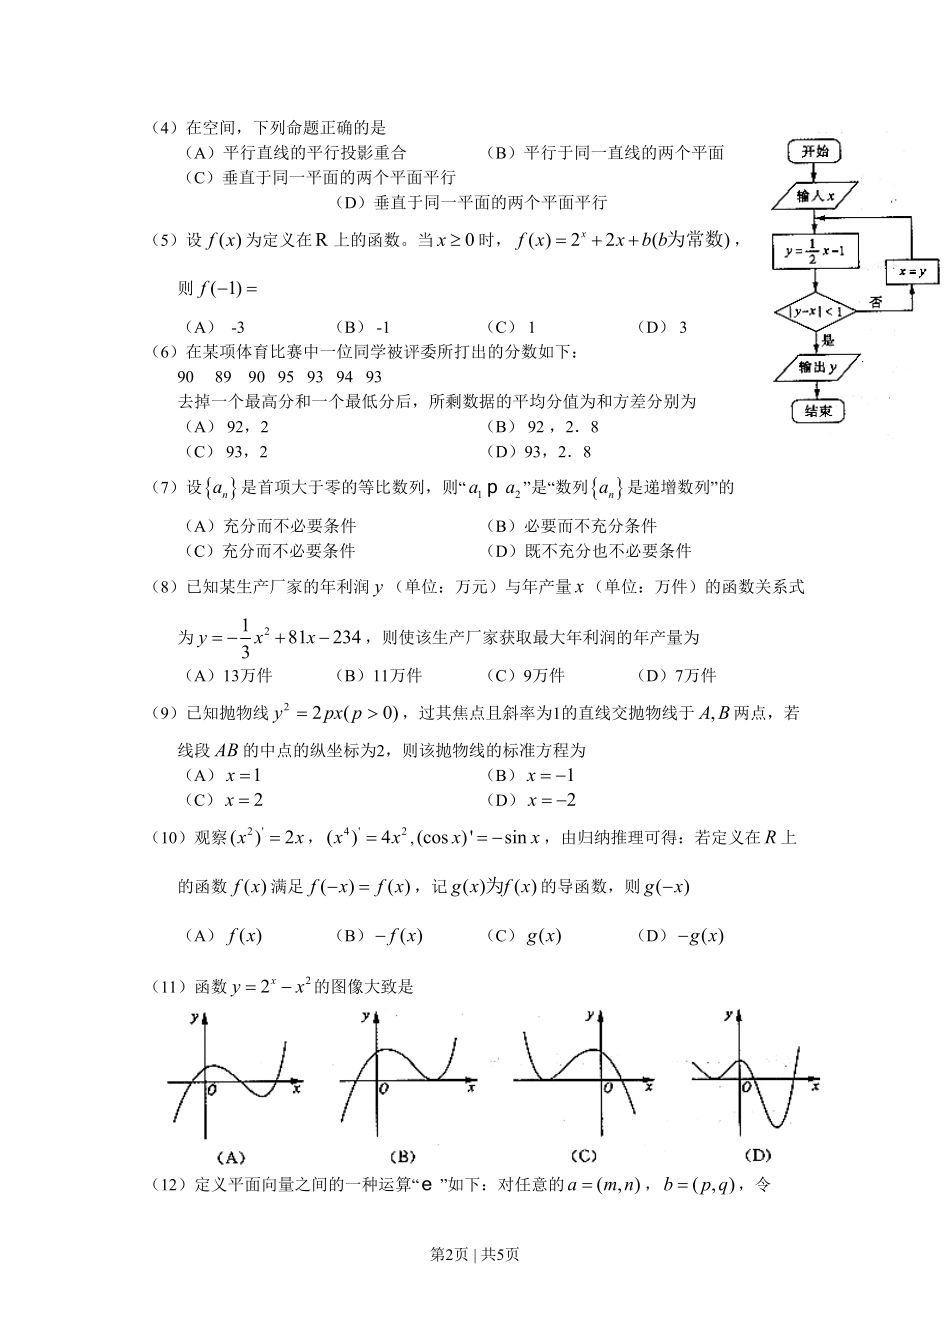 （4）在空间，下列命题正确的是
（A）平行直线的平行投影重合 （B）平行于同一直线的两个平面
（C）垂直于同一平面的两个平面平行
（D）垂直于同一平面的两个平面平行
（5）设 f(x) 为定义在 R 上的函数。当 x ≥ 0 时， f(x) = 2^x + 2x + b(b为常数)，
则 f(−1) =
（A） -3 （B） -1 （C） 1 （D） 3
（6）在某项体育比赛中一位同学被评委所打出的分数如下：
90 89 90 95 93 94 93
去掉一个最高分和一个最低分后，所剩数据的平均分值为和方差分别为
（A） 92，2 （B） 92 ，2．8
（C） 93，2 （D）93，2．8
（7）设{a_n}是首项大于零的等比数列，则“a_1 p a_2”是“数列{a_n}是递增数列”的
（A）充分而不必要条件 （B）必要而不充分条件
（C）充分而不必要条件 （D）既不充分也不必要条件
（8）已知某生产厂家的年利润 y （单位：万元）与年产量 x （单位：万件）的函数关系式
为 y = −1/3 x² + 81x − 234，则使该生产厂家获取最大年利润的年产量为
（A）13万件 （B）11万件 （C）9万件 （D）7万件
（9）已知抛物线 y² = 2px(p > 0)，过其焦点且斜率为1的直线交抛物线于 A, B 两点，若
线段 AB 的中点的纵坐标为2，则该抛物线的标准方程为
（A） x = 1 （B） x = −1
（C） x = 2 （D） x = −2
（10）观察 (x²)' = 2x， (x⁴)' = 4x², (cos x)' = −sin x，由归纳推理可得：若定义在 R 上
的函数 f(x) 满足 f(−x) = f(x)，记 g(x)为f(x) 的导函数，则 g(−x)
（A） f(x) （B） −f(x) （C） g(x) （D） −g(x)
（11）函数 y = 2^x − x² 的图像大致是
y y y y
O x O x O x O x
（A） （B） （C） （D）
（12）定义平面向量之间的一种运算“e ”如下：对任意的 a = (m, n)， b = (p, q)，令
开始
输入x
y=1/2 x-1
x=y
|y-x|<1
否
是
输出y
结束
第2页 | 共5页